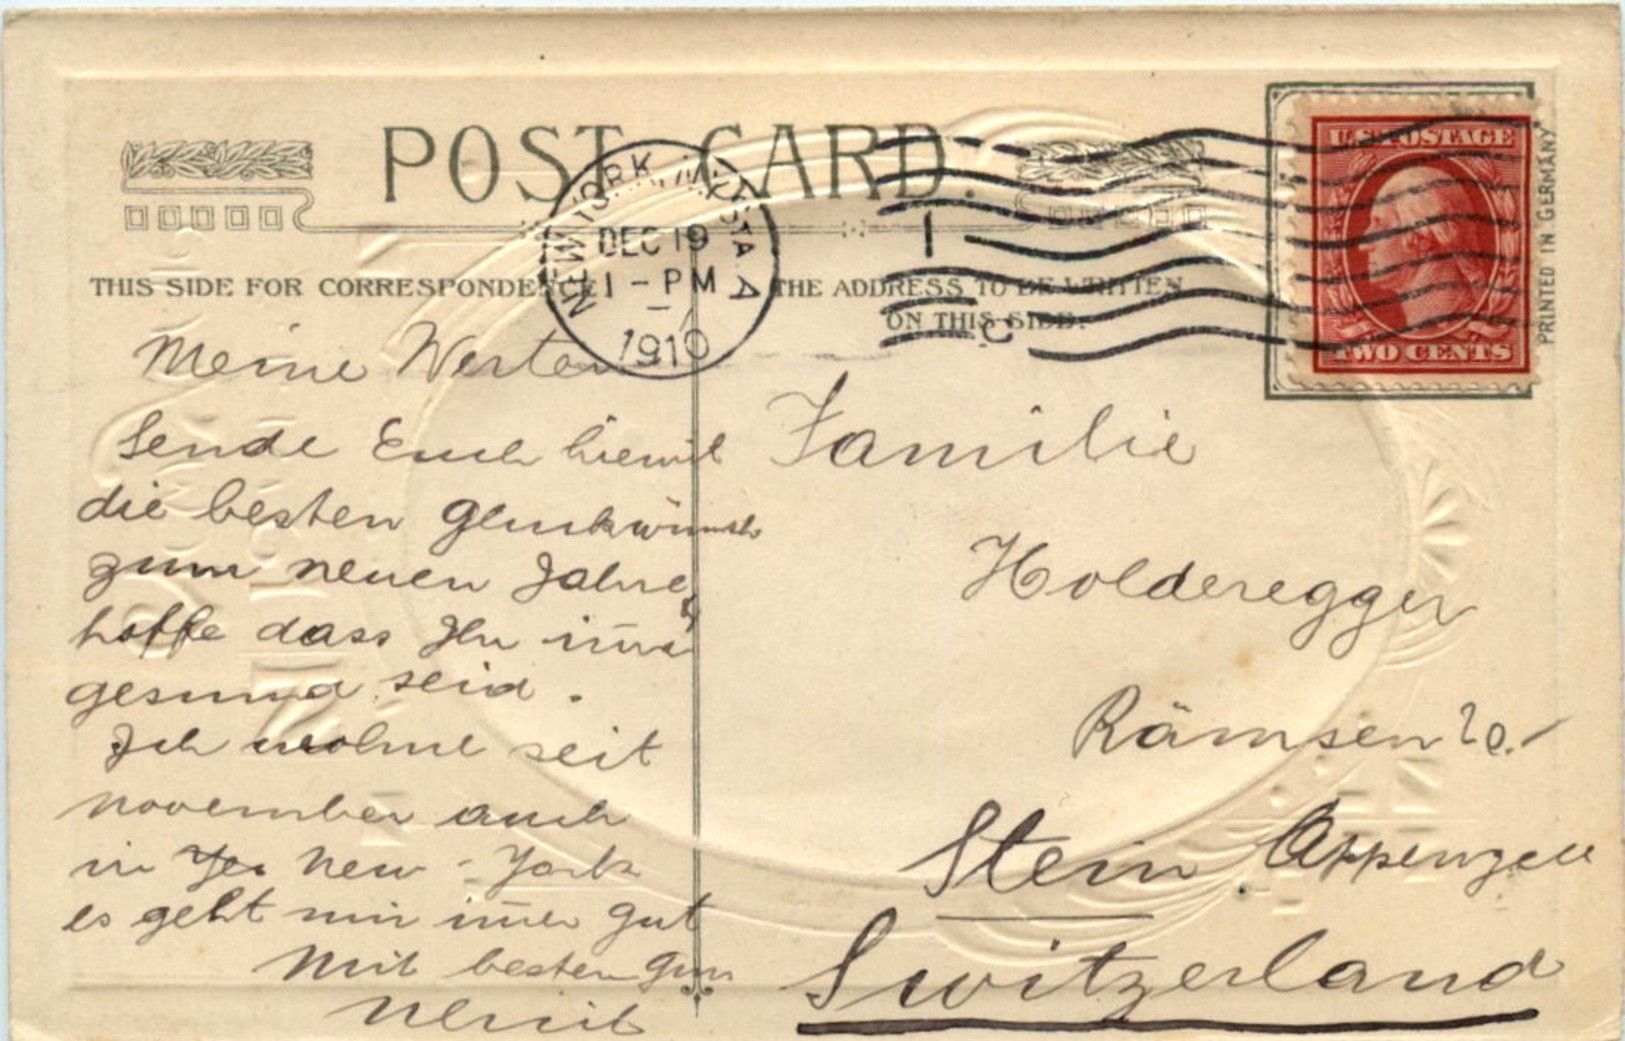 POST CARD.
NEW YORK, N.Y. STA. A
DEC 19
1 - PM
1910
U.S. POSTAGE
TWO CENTS
PRINTED IN GERMANY
THIS SIDE FOR CORRESPONDENCE
THE ADDRESS TO BE WRITTEN
ON THIS SIDE.
Meine Werten
Sende Euch hiemit
die besten Gluckwünsch
zum neuen Jahre,
hoffe dass Ihr
gesund seid.
Ich wohne seit
november auch
in New-York
es geht mir im̅er gut
Mit besten Gruss
Familie
Holderegger
Rämsen
Stein Appenzell
Switzerland